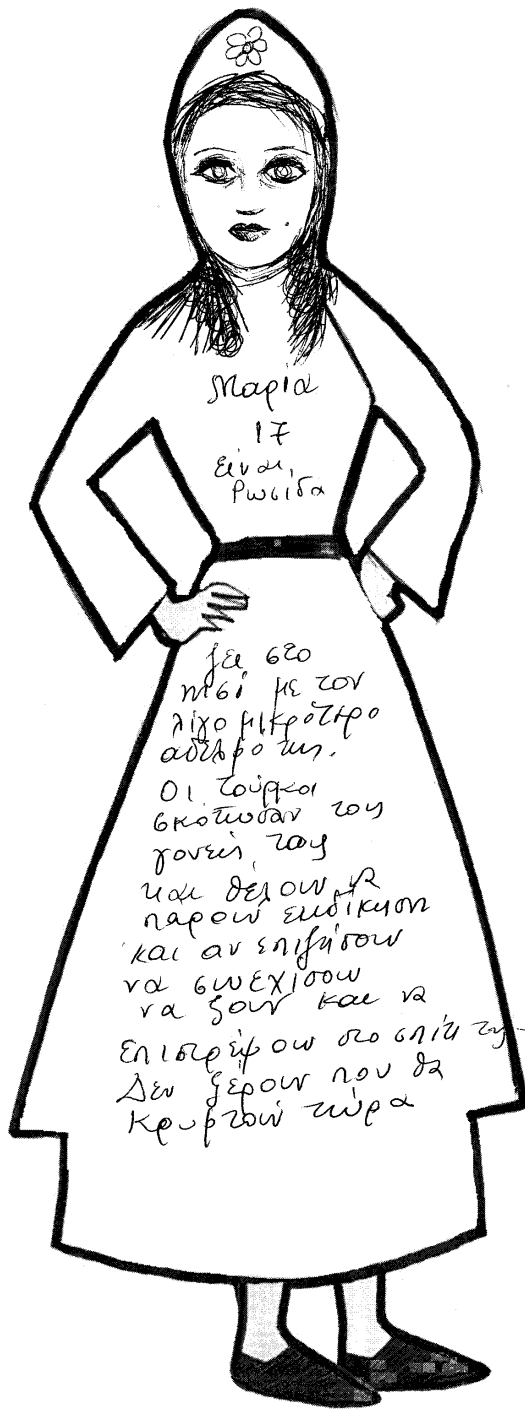 Μαρία
17
Είναι
Ρωσίδα
ζει στο
νησί με τον
λίγο μικρότερο
αδελφό της.
Οι τούρκοι
σκότωσαν τους
γονείς τους
και θέλουν να
παρουν εκδίκηση
και αν επιζήσουν
να συνεχίσουν
να ζουν και να
Επιστρέψουν στο σπίτι τους.
Δεν ξέρουν που θα
κρυφτούν τώρα